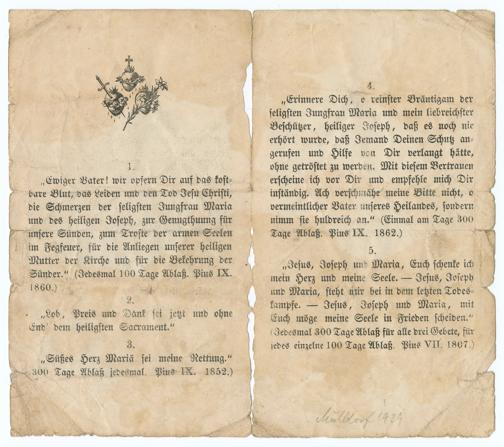 1.
„Ewiger Vater! wir opfern Dir auf das kost-
bare Blut, das Leiden und den Tod Jesu Christi,
die Schmerzen der seligsten Jungfrau Maria
und des heiligen Joseph, zur Genugthuung für
unsere Sünden, zum Troste der armen Seelen
im Fegfeuer, für die Anliegen unserer heiligen
Mutter der Kirche und für die Bekehrung der
Sünder.“ (Jedesmal 100 Tage Ablaß. Pius IX.
1860.)
2.
„Lob, Preis und Dank sei jetzt und ohne
End' dem heiligsten Sacrament.“
3.
„Süßes Herz Mariä sei meine Rettung.“
300 Tage Ablaß jedesmal. Pius IX. 1852.)
4.
„Erinnere Dich, o reinster Bräutigam der
seligsten Jungfrau Maria und mein liebreichster
Beschützer, heiliger Joseph, daß es noch nie
erhört wurde, daß Jemand Deinen Schutz an-
gerufen und Hilfe von Dir verlangt hätte,
ohne getröstet zu werden. Mit diesem Vertrauen
erscheine ich vor Dir und empfehle mich Dir
inständig. Ach verschmähe meine Bitte nicht, o
vermeintlicher Vater unseres Heilandes, sondern
nimm sie huldreich an.“ (Einmal am Tage 300
Tage Ablaß. Pius IX. 1862.)
5.
„Jesus, Joseph und Maria, Euch schenke ich
mein Herz und meine Seele. — Jesus, Joseph
und Maria, steht mir bei in dem letzten Todes-
kampfe. — Jesus, Joseph und Maria, mit
Euch möge meine Seele in Frieden scheiden.“
(Jedesmal 300 Tage Ablaß für alle drei Gebete, für
jedes einzelne 100 Tage Ablaß. Pius VII. 1807.)
Mühldorf